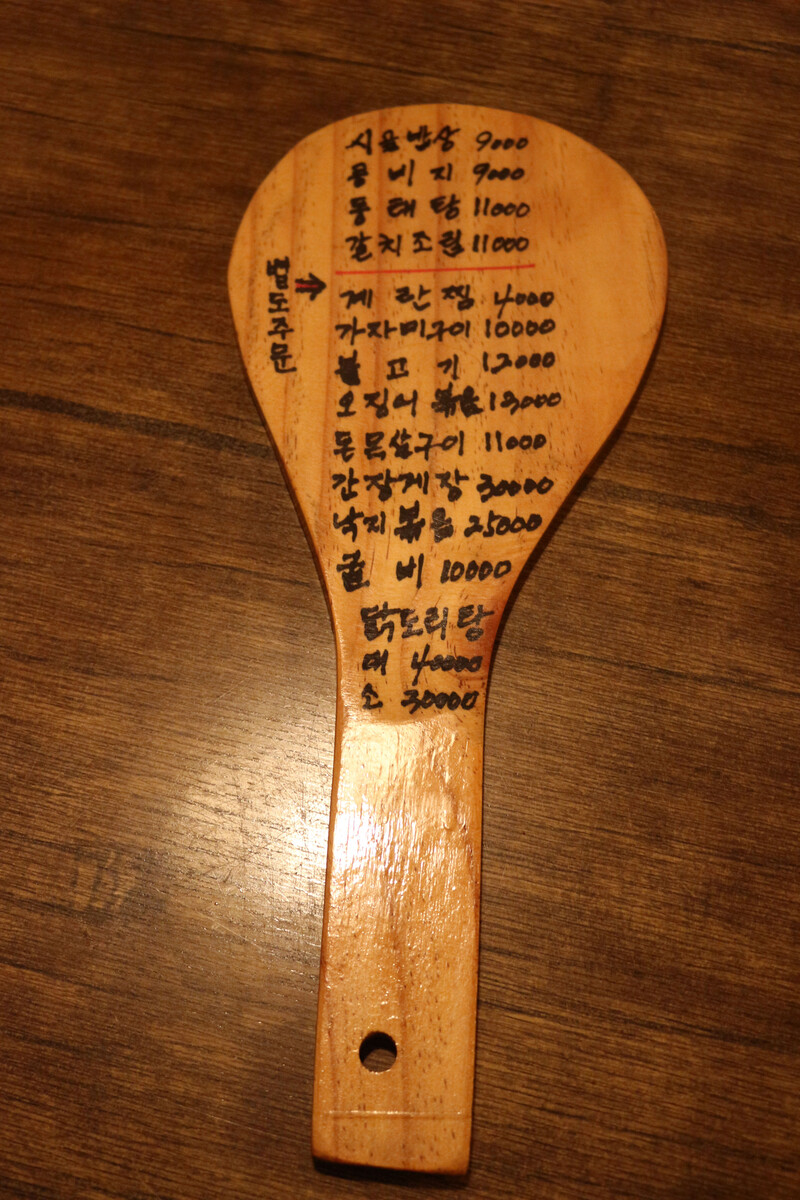 시골밥상 9000
콩비지 9000
동태탕 11000
갈치조림 11000
별도주문 →
계란찜 4000
가자미구이 10000
불고기 12000
오징어볶음 13000
돈목살구이 11000
간장게장 30000
낙지볶음 25000
굴비 10000
닭도리탕
대 40000
소 30000